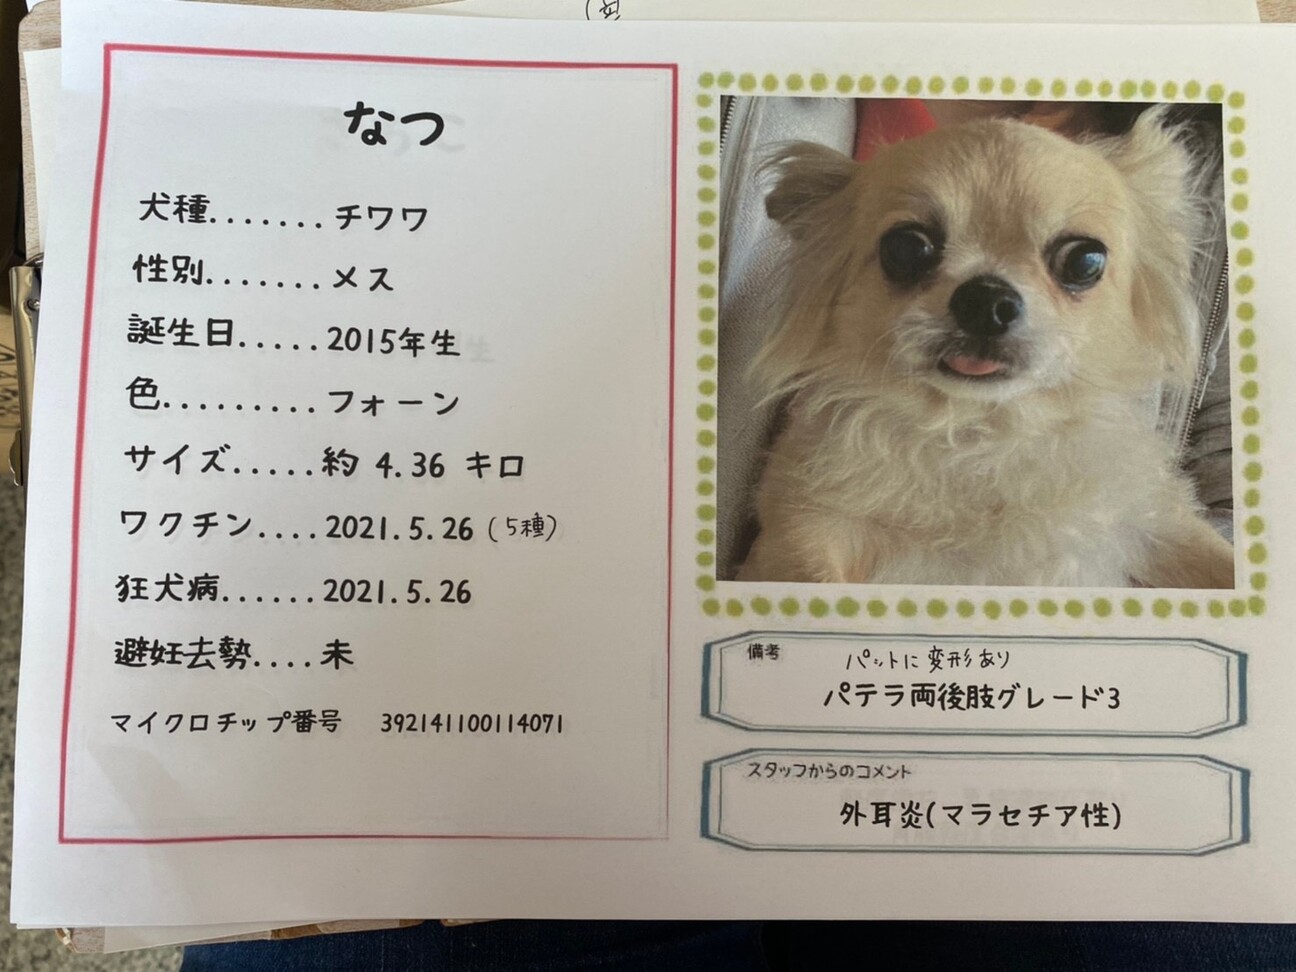 なつ
犬種.......チワワ
性別.......メス
誕生日.....2015年生
色.........フォーン
サイズ.....約 4.36 キロ
ワクチン....2021.5.26 (5種)
狂犬病......2021.5.26
避妊去勢....未
マイクロチップ番号 392141100114071
備考
パットに変形あり
パテラ両後肢グレード3
スタッフからのコメント
外耳炎(マラセチア性)